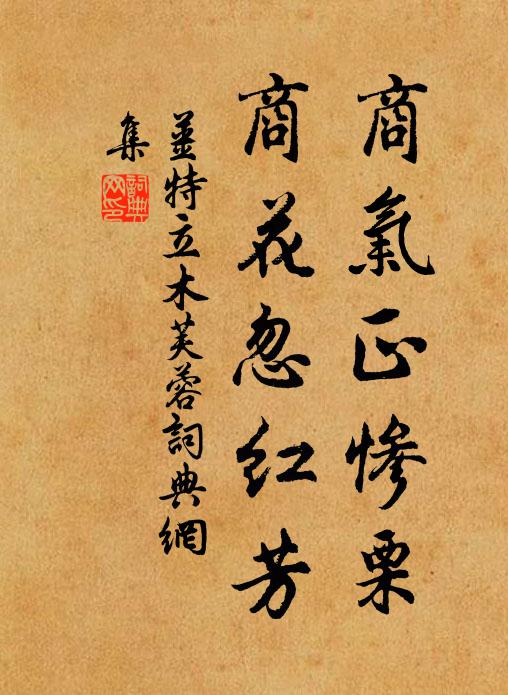 商氣正慘栗
商花忽紅芳
姜特立木芙蓉詞典網
集
詞典
网印